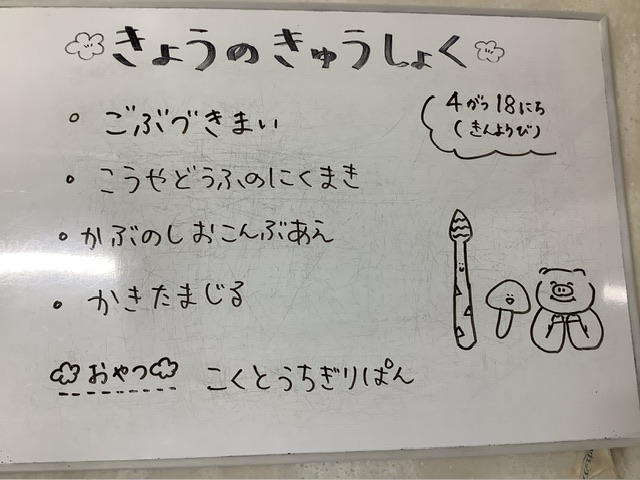 きょうのきゅうしょく
4がつ18にち
(きんようび)
。ごぶづきまい
。こうやどうふのにくまき
。かぶのしおこんぶあえ
。かきたまじる
おやつ こくとうちぎりぱん